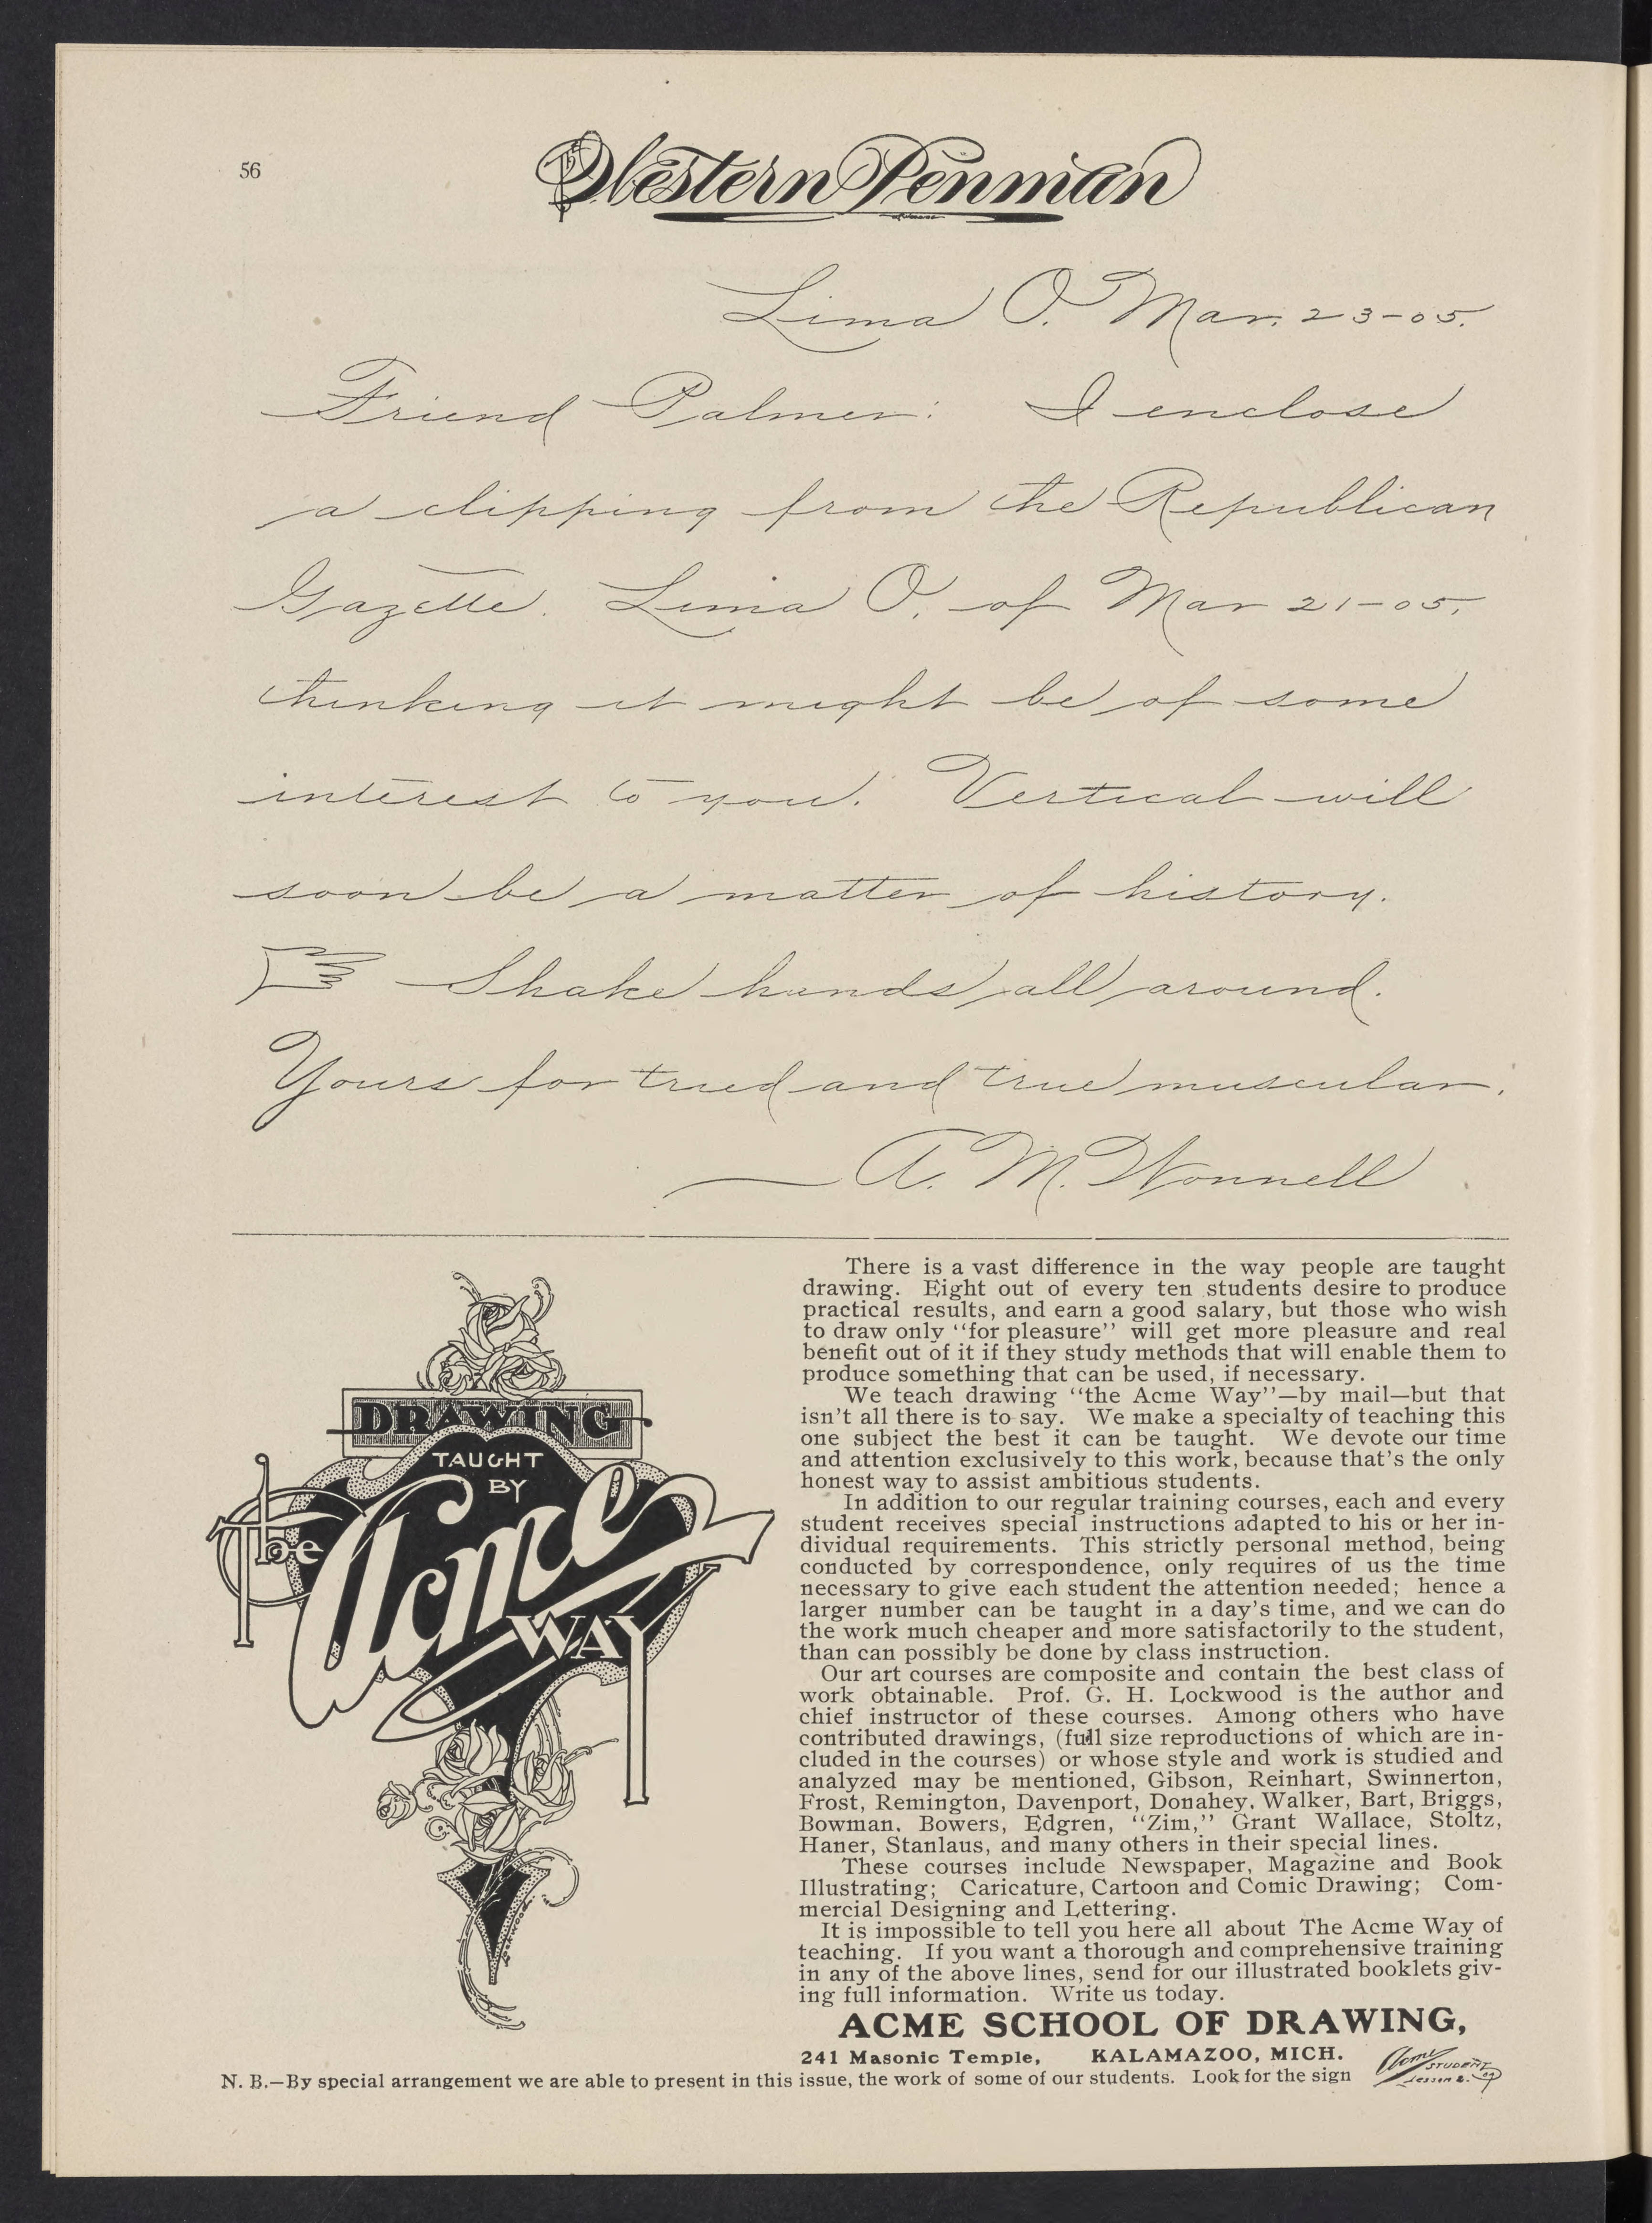 56
The Western Penman
Lima O. Mar. 23-05.
Friend Palmer: I enclose
a clipping from the Republican
Gazette. Lima O. of Mar 21-05,
thinking it might be of some
interest to you. Vertical will
soon be a matter of history.
Shake hands all around.
Yours for tried and true muscular.
A. M. Wonnell
DRAWING
TAUGHT
BY
The
Acme
WAY
There is a vast difference in the way people are taught
drawing. Eight out of every ten students desire to produce
practical results, and earn a good salary, but those who wish
to draw only "for pleasure" will get more pleasure and real
benefit out of it if they study methods that will enable them to
produce something that can be used, if necessary.
We teach drawing "the Acme Way"—by mail—but that
isn't all there is to say. We make a specialty of teaching this
one subject the best it can be taught. We devote our time
and attention exclusively to this work, because that's the only
honest way to assist ambitious students.
In addition to our regular training courses, each and every
student receives special instructions adapted to his or her in-
dividual requirements. This strictly personal method, being
conducted by correspondence, only requires of us the time
necessary to give each student the attention needed; hence a
larger number can be taught in a day's time, and we can do
the work much cheaper and more satisfactorily to the student,
than can possibly be done by class instruction.
Our art courses are composite and contain the best class of
work obtainable. Prof. G. H. Lockwood is the author and
chief instructor of these courses. Among others who have
contributed drawings, (full size reproductions of which are in-
cluded in the courses) or whose style and work is studied and
analyzed may be mentioned, Gibson, Reinhart, Swinnerton,
Frost, Remington, Davenport, Donahey, Walker, Bart, Briggs,
Bowman, Bowers, Edgren, "Zim," Grant Wallace, Stoltz,
Haner, Stanlaus, and many others in their special lines.
These courses include Newspaper, Magazine and Book
Illustrating; Caricature, Cartoon and Comic Drawing; Com-
mercial Designing and Lettering.
It is impossible to tell you here all about The Acme Way of
teaching. If you want a thorough and comprehensive training
in any of the above lines, send for our illustrated booklets giv-
ing full information. Write us today.
ACME SCHOOL OF DRAWING,
241 Masonic Temple, KALAMAZOO, MICH.
N. B.—By special arrangement we are able to present in this issue, the work of some of our students. Look for the sign
Acme
STUDENT
Lesson 2.